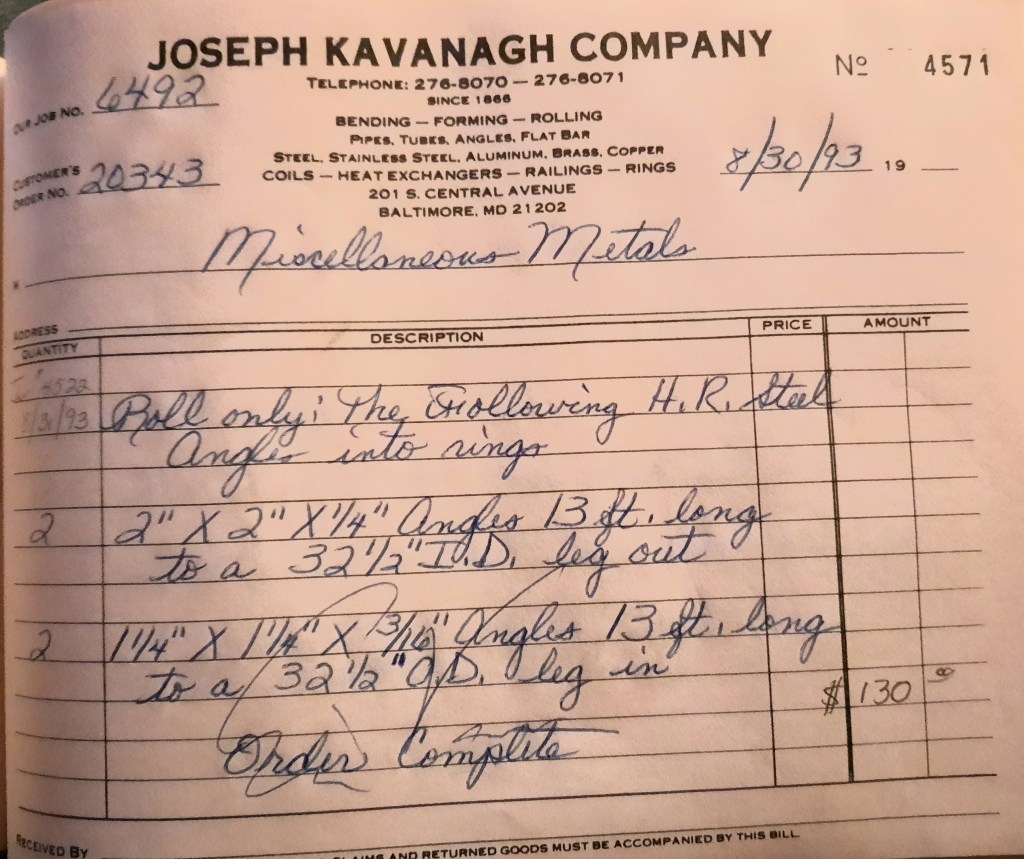 JOSEPH KAVANAGH COMPANY
Nº 4571
TELEPHONE: 276-8070 — 276-8071
SINCE 1866
OUR JOB NO. 6492
BENDING — FORMING — ROLLING
PIPES, TUBES, ANGLES, FLAT BAR
STEEL, STAINLESS STEEL, ALUMINUM, BRASS, COPPER
COILS — HEAT EXCHANGERS — RAILINGS — RINGS
201 S. CENTRAL AVENUE
BALTIMORE, MD 21202
CUSTOMER'S
ORDER NO. 20343
8/30/93 19
Miscellaneous Metals
ADDRESS
QUANTITY DESCRIPTION PRICE AMOUNT
4522
8/31/93 Roll only: The Following H.R. Steel
Angles into rings
2 2" X 2" X 1/4" Angles 13 ft. long
to a 32 1/2" I.D. leg out
2 1 1/4" X 1 1/4" X 3/16" Angles 13 ft. long
to a 32 1/2" O.D. leg in
$ 130 00
Order Complete
RECEIVED BY
CLAIMS AND RETURNED GOODS MUST BE ACCOMPANIED BY THIS BILL